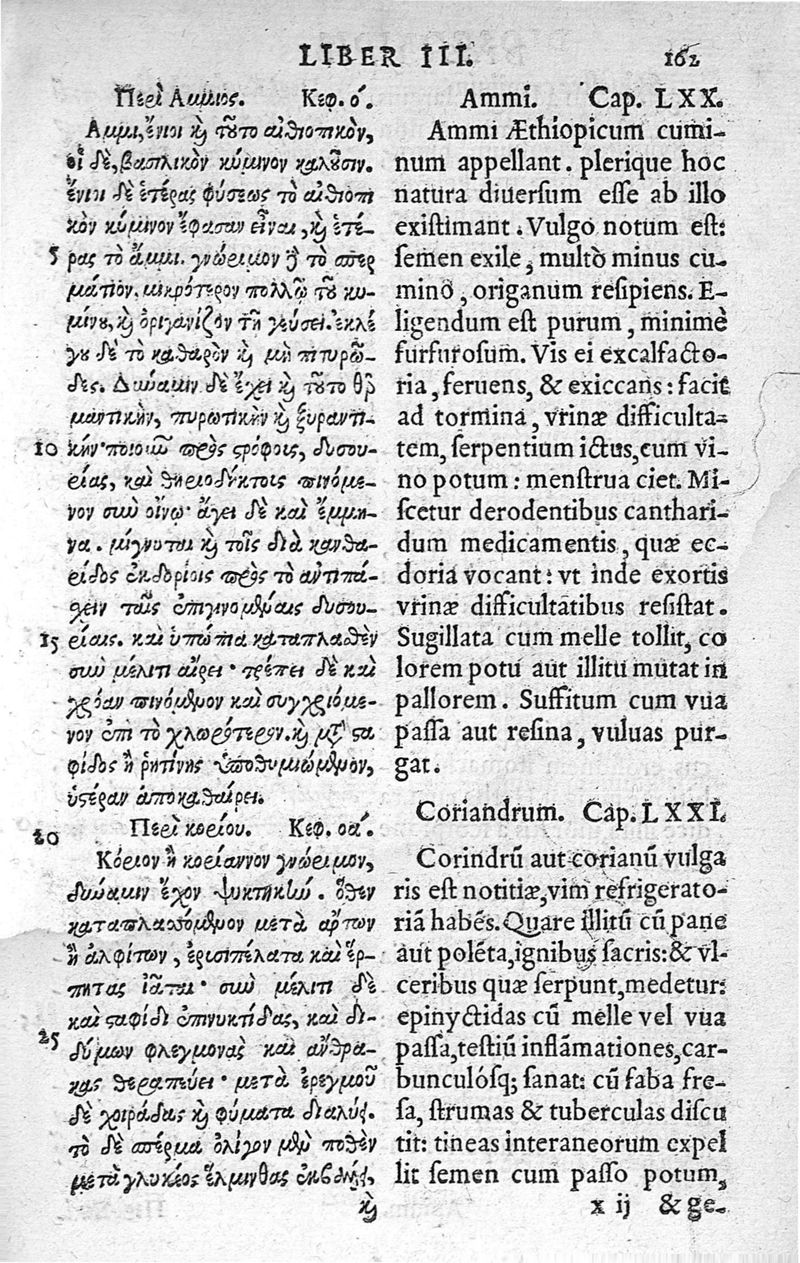 LIBER III. 162
Περὶ Αμμιος. Κεφ. ό.
Αμμι, ἔνιοι κὶ τοῦτο αἰθιοπικὸν,
οἱ δὲ, βασιλικὸν κύμινον καλοῦσιν.
ἔνιοι δὲ ἑτέρας φύσεως τὸ αἰθιοπι
κὸν κύμινον ἔφασαν εἶναι, κὶ ἑτέ-
5 ρας τὸ ἄμμι. γνώριμον δ τὸ σπερ
μάτιον. μικρότερον πολλῷ τοῦ κυ-
μίνου, κὶ ὀριγανίζον τῇ γεύσει. ἐκλέ
γου δὲ τὸ καθαρὸν κὶ μὴ πιτυρῶ-
δες. Δύναμιν δὲ ἔχει κὶ τοῦτο θερ
μαντικὴν, πυρωτικὴν κὶ ξηραντι-
10 κήν· ποιοῦν πρὸς στρόφοις, δυσου-
ρίας, καὶ θηριοδήκτοις πινόμε-
νον σὺν οἴνῳ· ἄγει δὲ καὶ ἔμμη-
να. μίγνυται κὶ τοῖς διὰ κανθα-
ρίδος ἐκδορίοις πρὸς τὸ ἀντιπά-
χειν ταῖς ἐπιγινομέναις δυσου-
15 ρίαις. καὶ ὑπώπια καταπλασθὲν
σὺν μέλιτι αἴρει· τρέπει δὲ καὶ
χρόαν πινόμενον καὶ συγχριόμε-
νον ἐπὶ τὸ χλωρότερον. κὶ μετὰ στα
φίδος ἢ ῥητίνης ὑποθυμιώμενον,
ὑστέραν ἀποκαθαίρει.
20 Περὶ κορίου. Κεφ. οα΄.
Κόριον ἢ κορίαννον γνώριμον,
δύναμιν ἔχον ψυκτικήν. ὅθεν
καταπλασσόμενον μετὰ ἄρτων
ἢ ἀλφίτων, ἐρισιπέλατα καὶ ἕρ-
πητας ἰᾶται· σὺν μέλιτι δὲ
25 καὶ σταφίδι ἐπινυκτίδας, καὶ δι-
δύμων φλεγμονὰς καὶ ἄνθρα-
κας θεραπεύει· μετὰ ἐρεγμοῦ
δὲ χοιράδας κὶ φύματα διαλύει.
τὸ δὲ σπέρμα ὀλίγον μὲν ποθὲν
μετὰ γλυκέος ἕλμινθας ἐκβάλλει,
κὶ
Ammi. Cap. LXX.
Ammi Æthiopicum cumi-
num appellant. plerique hoc
natura diuersum esse ab illo
existimant. Vulgo notum est:
semen exile, multò minus cu-
mino, origanum resipiens. E-
ligendum est purum, minimè
furfurosum. Vis ei excalfacto-
ria, feruens, & exiccans: facit
ad tormina, vrinæ difficulta-
tem, serpentium ictus, cum vi-
no potum: menstrua ciet. Mi-
scetur derodentibus canthari-
dum medicamentis, quæ ec-
doria vocant: vt inde exortis
vrinæ difficultatibus resistat.
Sugillata cum melle tollit, co
lorem potu aut illitu mutat in
pallorem. Suffitum cum vua
passa aut resina, vuluas pur-
gat.
Coriandrum. Cap. LXXI.
Corindrũ aut corianũ vulga
ris est notitiæ, vim refrigerato-
riã habẽs. Quare illitũ cũ pane
aut polẽta, ignibus sacris: & vl-
ceribus quæ serpunt, medetur:
epinyctidas cũ melle vel vua
passa, testiũ inflãmationes, car-
bunculósq; sanat: cũ faba fre-
sa, strumas & tuberculas discu
tit: tineas interaneorum expel
lit semen cum passo potum,
x ij & ge-